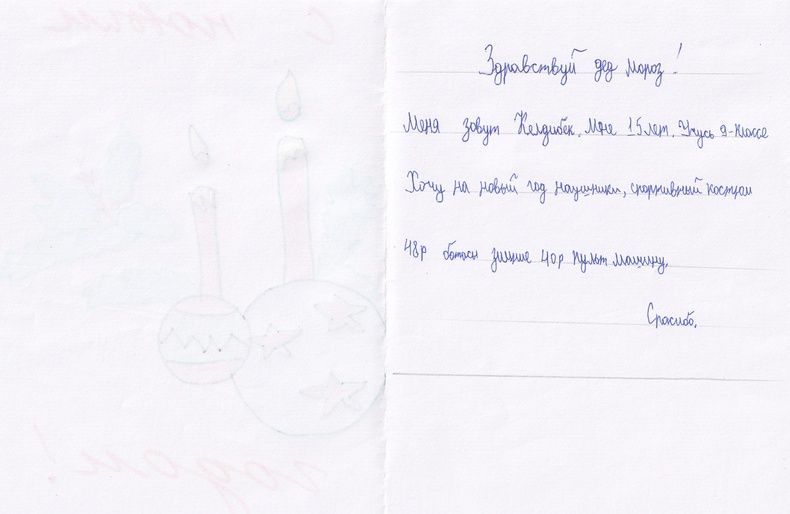 С новым
годом!
Здравствуй дед мороз!
Меня зовут Келдибек. Мне 15 лет. Учусь 9-классе
Хочу на новый год наушники, спортивный костюм
48р ботасы зимние 40р пульт машину.
Спасибо.